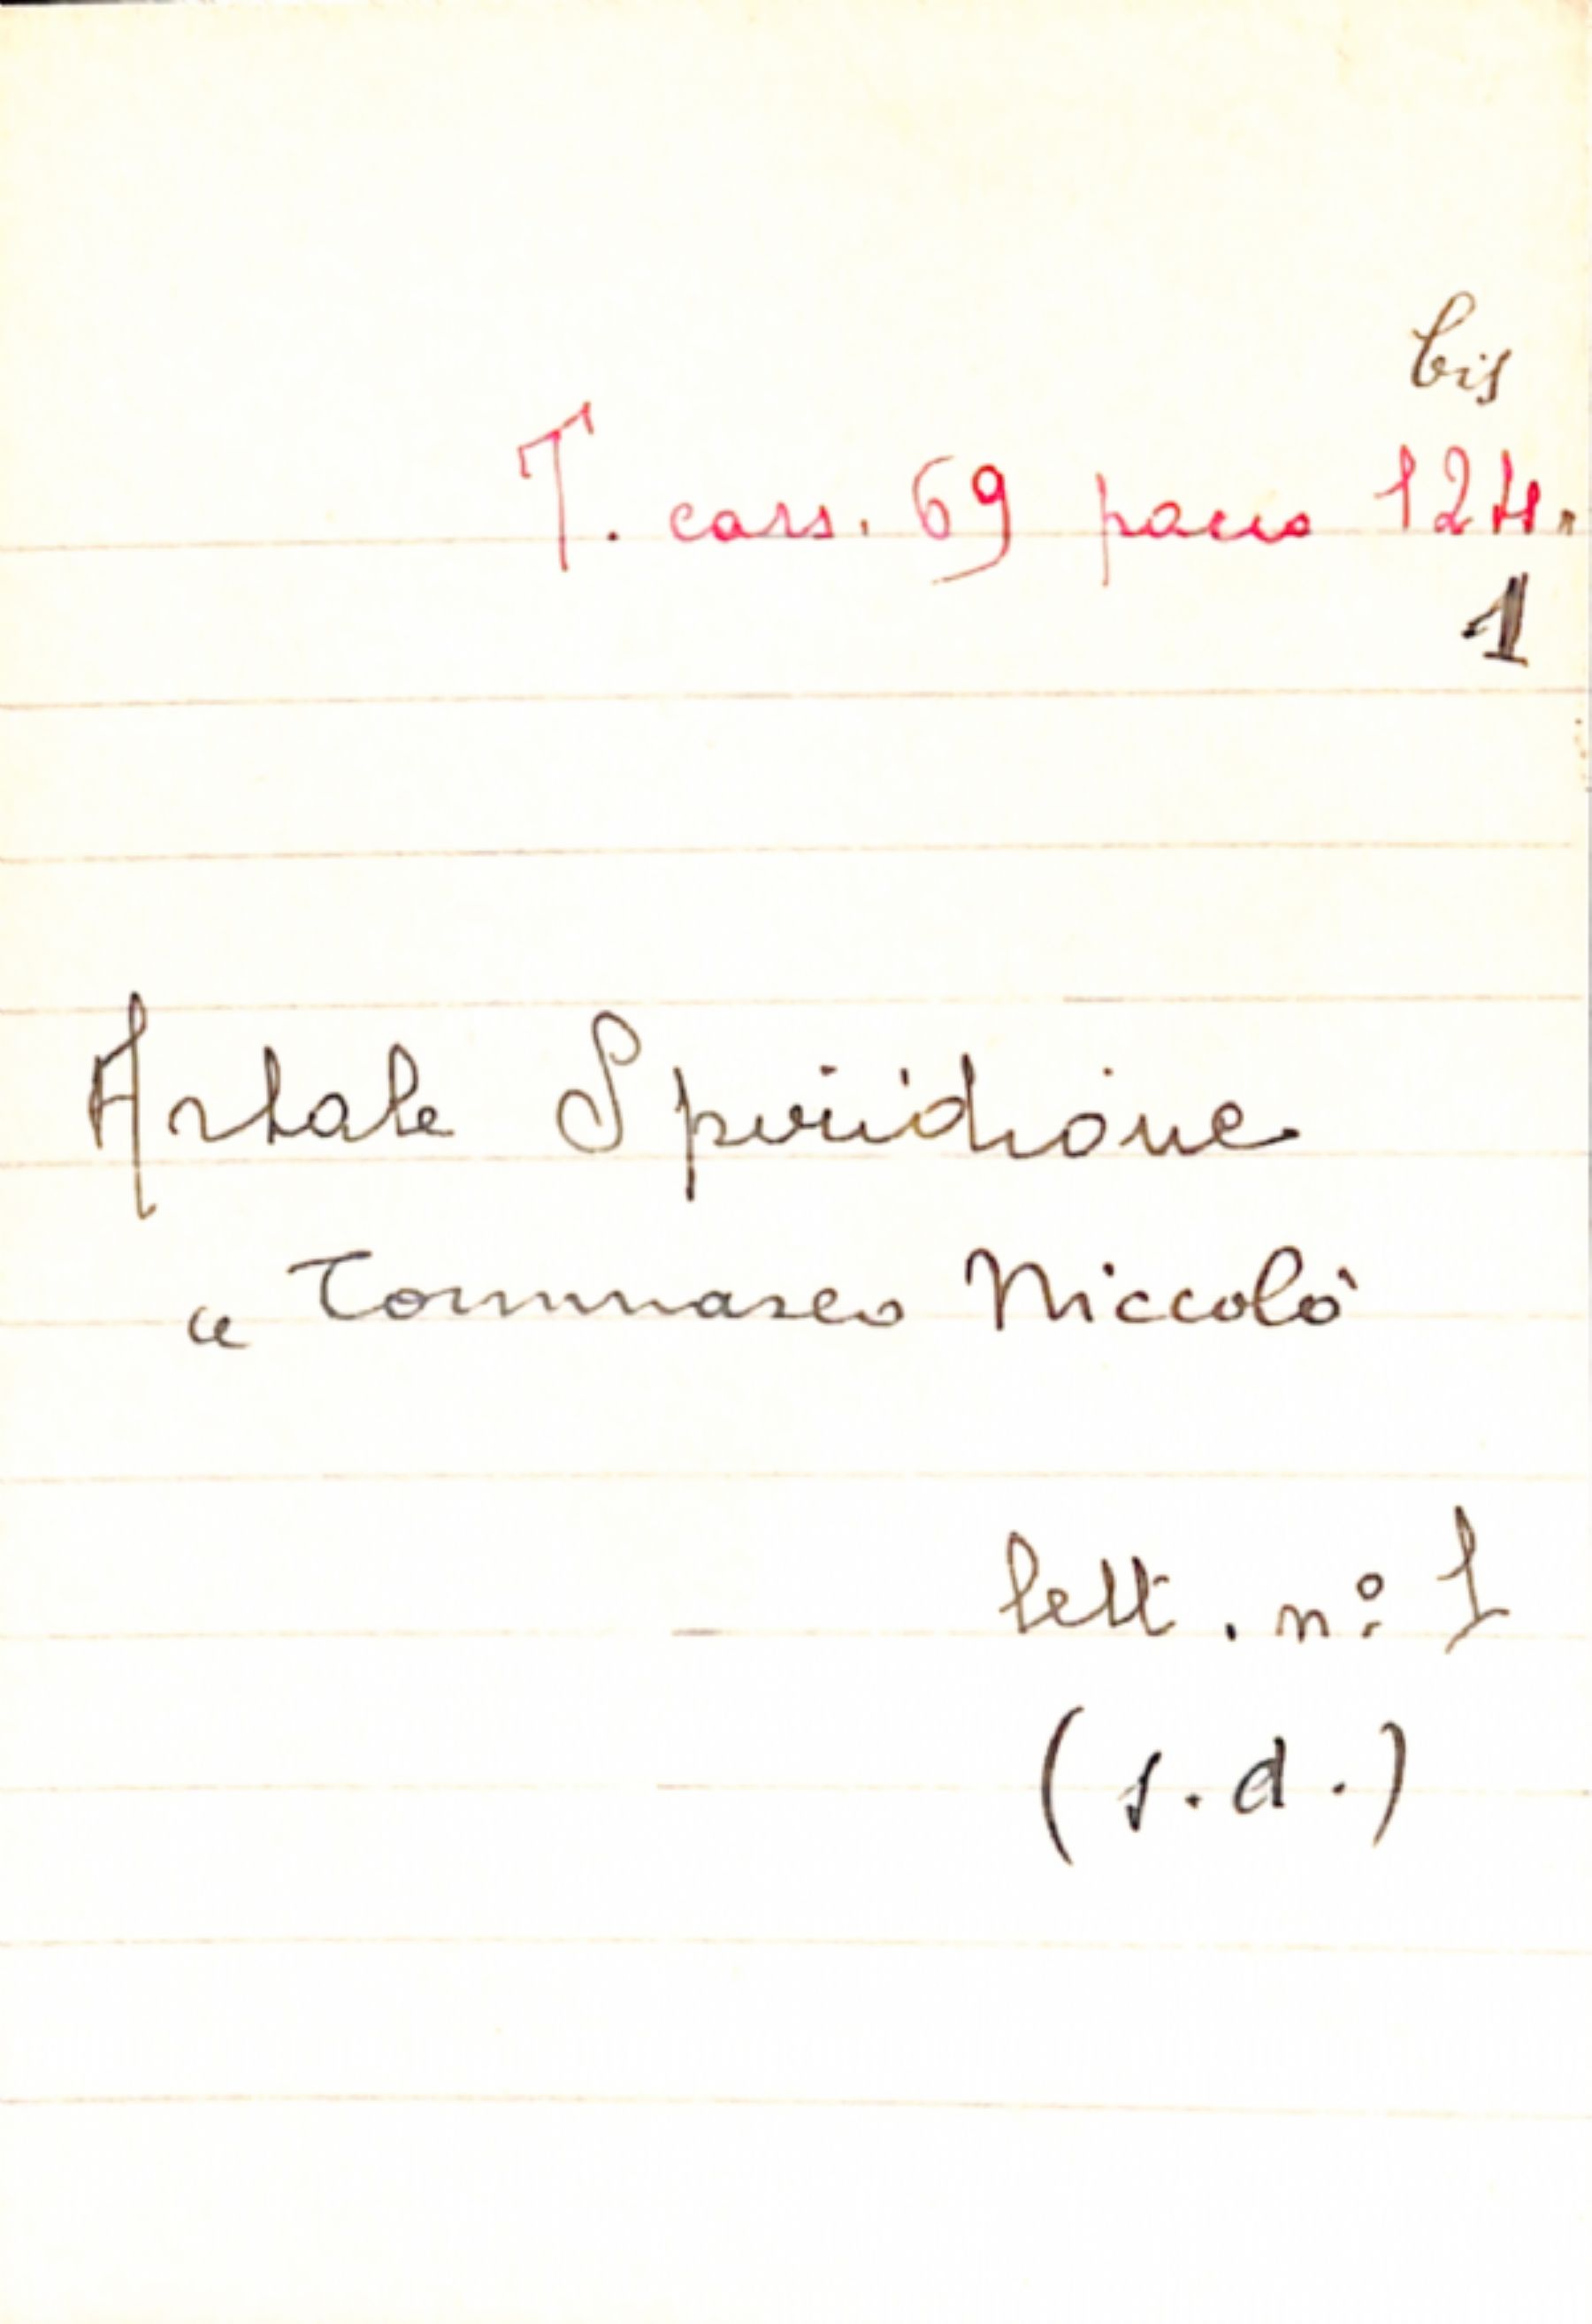 bis
T. cass. 69 pacco 124.
1
Artale Spiridione
a Tommaseo Niccolò
lett. nº 1
(s.d.)